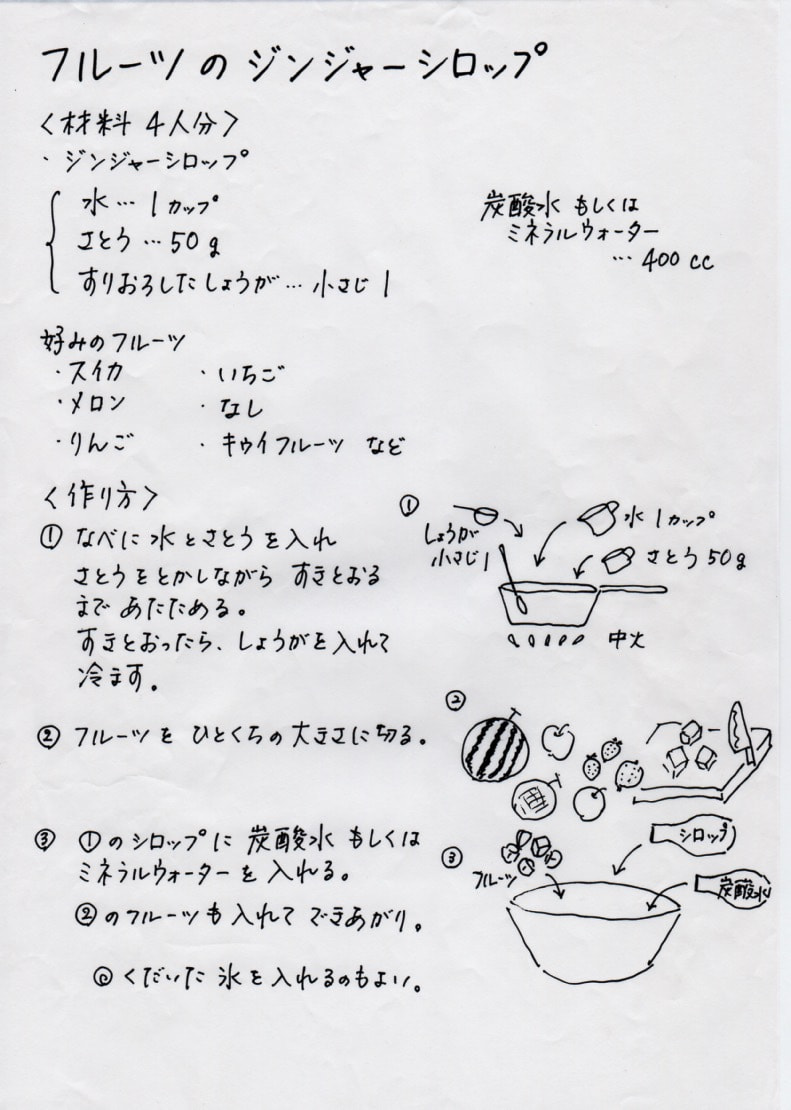 フルーツの ジンジャーシロップ
〈材料 4人分〉
・ジンジャーシロップ
水… 1カップ
さとう…50g
すりおろしたしょうが…小さじ1
炭酸水 もしくは
ミネラルウォーター
…400cc
好みのフルーツ
・スイカ ・いちご
・メロン ・なし
・りんご ・キゥイフルーツ など
〈作り方〉
① なべに水とさとうを入れ
さとうをとかしながら すきとおる
まで あたためる。
すきとおったら、しょうがを入れて
冷ます。
①
しょうが
小さじ1
水1カップ
さとう50g
中火
② フルーツを ひとくちの大きさに切る。
②
③ ①のシロップに 炭酸水 もしくは
ミネラルウォーターを 入れる。
②のフルーツも入れて できあがり。
◎くだいた 氷を入れるのもよい。
③
フルーツ
シロップ
炭酸水